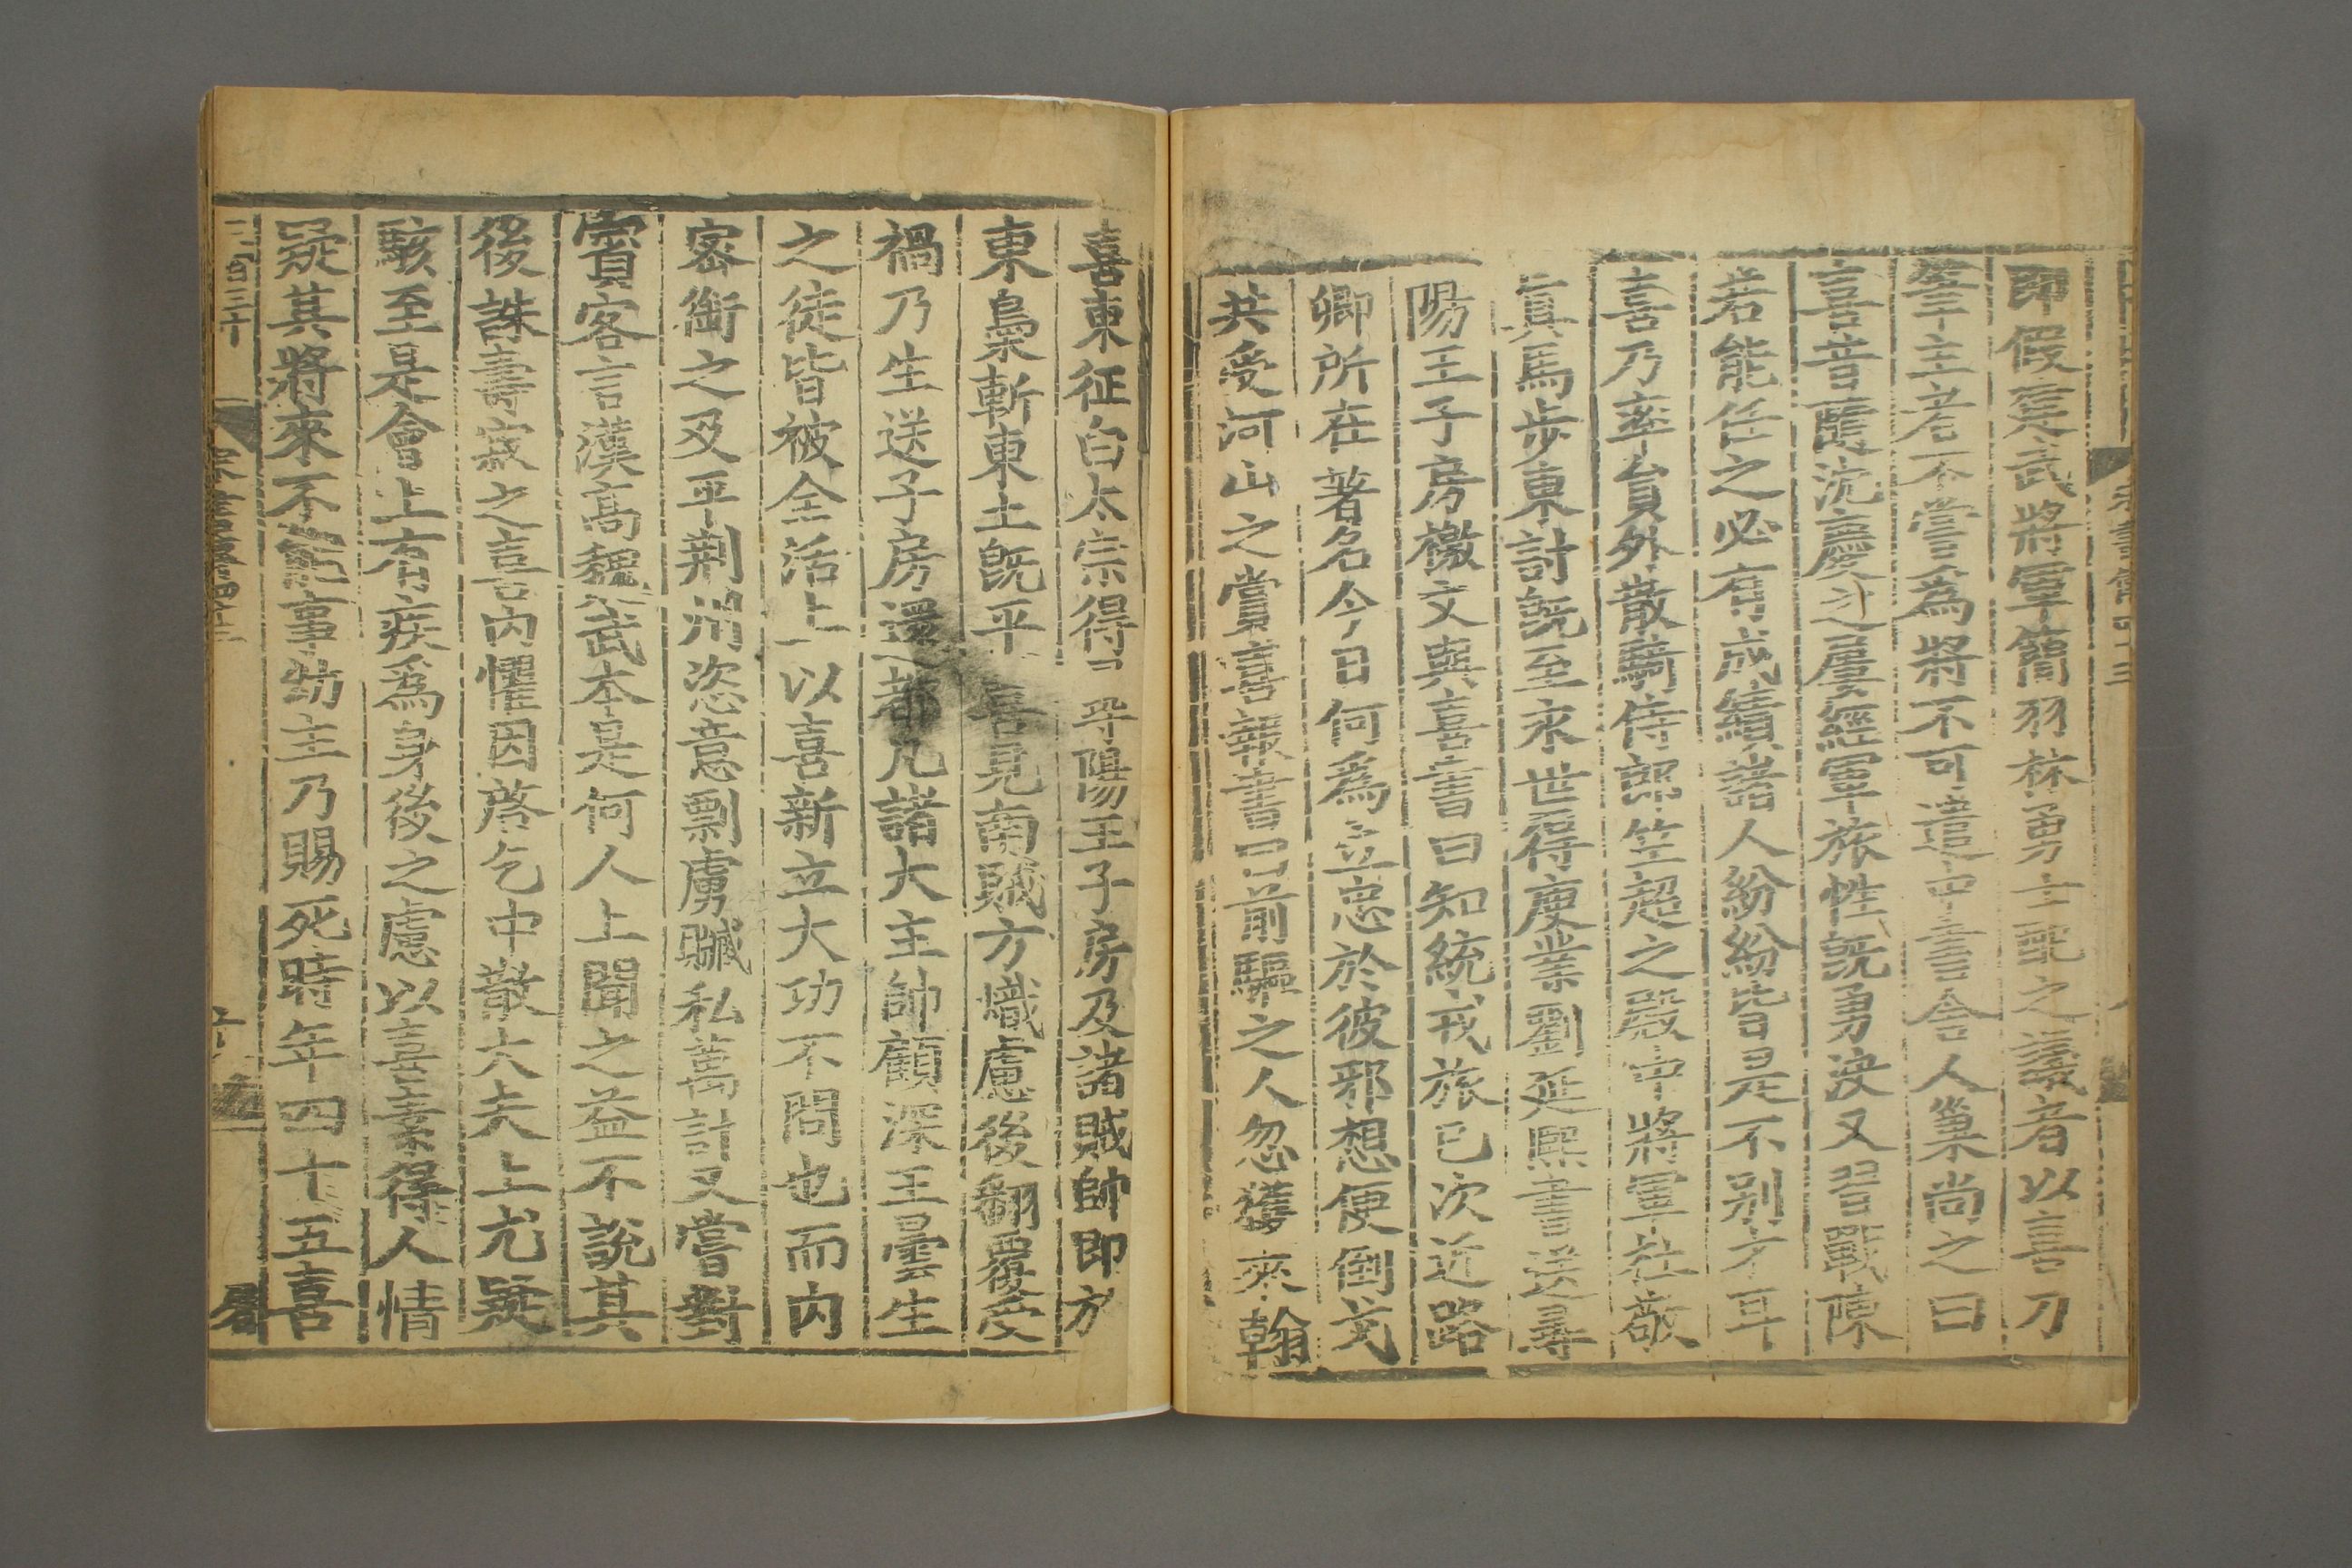 即假建武將軍簡羽林勇士配之議者以喜刀
筆主者不嘗為將不可遣中書舍人巢尚之曰
喜昔隨沈慶之屢經軍旅性既勇決又習戰陳
若能任之必有成績諸人紛紛皆是不別才耳
喜乃率員外散騎侍郎竺超之殿中將軍杜敬
真馬步東討既至永世得庾業劉延熙書送尋
陽王子房檄文與喜書曰知統戎旅已次近路
卿所在著名今日何爲立忠於彼邪想便倒戈
共受河山之賞喜報書曰前驅之人忽獲來翰
喜東征白太宗得尋陽王子房及諸賊帥即於
東梟斬東土旣平喜見南賊方熾慮後翻覆受
禍乃生送子房還都凡諸大主帥顧深王曇生
之徒皆被全活上以喜新立大功不問也而内
密銜之及平荆州恣意剽虜贓私萬計又嘗對
賓客言漢高魏武本是何人上聞之益不說其
後誅壽寂之喜内懼因啓乞中散大夫上尤疑
駭至是會上有疾爲身後之慮以喜素得人情
疑其將來不能事幼主乃賜死時年四十五喜
三百三十
宋書傳四十三